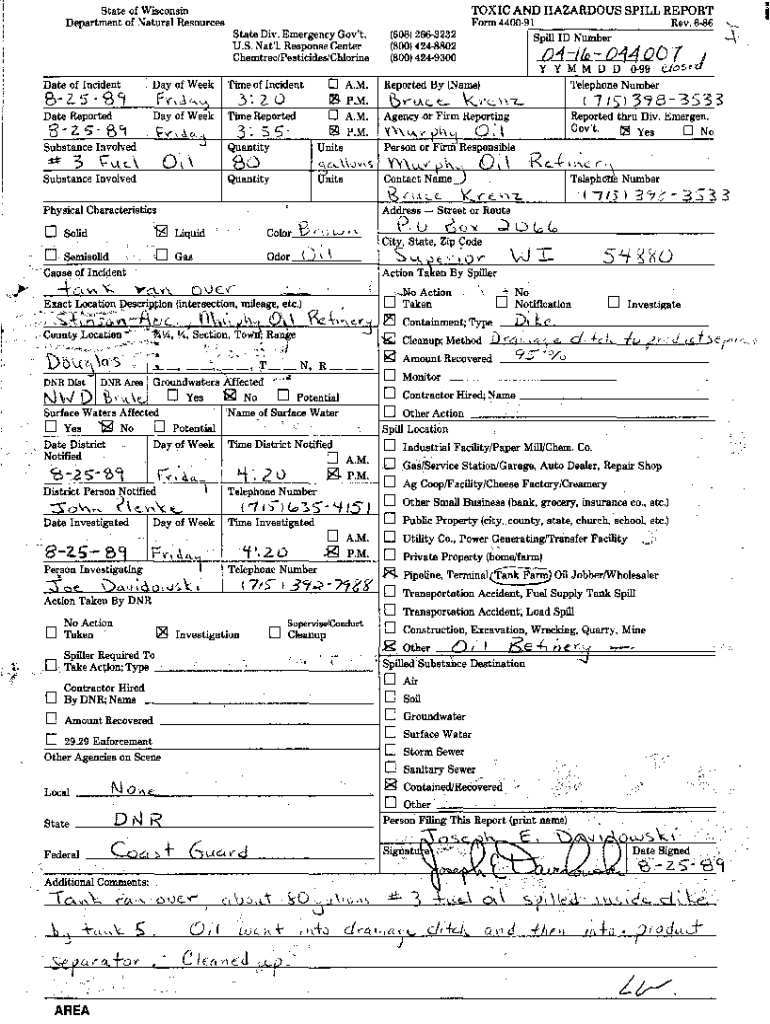 State of Wisconsin
Department of Natural Resources
TOXIC AND HAZARDOUS SPILL REPORT
Form 4400-91 Rev. 6-86
State Div. Emergency Gov't. (608) 266-3232
U.S. Nat'l. Response Center (800) 424-8802
Chemtrec/Pesticides/Chlorine (800) 424-9300
Spill ID Number
04-16-044007
Y Y M M D D 0-99 closed
Date of Incident Day of Week Time of Incident A.M.
8-25-89 Friday 3:20 P.M.
Date Reported Day of Week Time Reported A.M.
8-25-89 Friday 3:55 P.M.
Substance Involved Quantity Units
#3 Fuel Oil 80 gallons
Substance Involved Quantity Units
Physical Characteristics
Solid Liquid Color Brown
Semisolid Gas Odor Oil
Cause of Incident
tank ran over
Exact Location Description (intersection, mileage, etc.)
Stinson Ave, Murphy Oil Refinery
County Location ¼¼, ¼, Section, Town, Range
Douglas , , T N, R
DNR Dist DNR Area Groundwaters Affected
NWD Brule Yes No Potential
Surface Waters Affected Name of Surface Water
Yes No Potential
Date District Notified Day of Week Time District Notified A.M.
8-25-89 Friday 4:20 P.M.
District Person Notified Telephone Number
John Plenke (715) 635-4151
Date Investigated Day of Week Time Investigated A.M.
8-25-89 Friday 4:20 P.M.
Person Investigating Telephone Number
Joe Davidowski (715) 392-7988
Action Taken By DNR
No Action Taken Investigation Supervise/Conduct Cleanup
Spiller Required To
Take Action; Type
Contractor Hired
By DNR; Name
Amount Recovered
29.29 Enforcement
Other Agencies on Scene
Local None
State DNR
Federal Coast Guard
Reported By (Name) Telephone Number
Bruce Krenz (715) 398-3533
Agency or Firm Reporting Reported thru Div. Emergen. Gov't.
Murphy Oil Yes No
Person or Firm Responsible
Murphy Oil Refinery
Contact Name Telephone Number
Bruce Krenz (715) 398-3533
Address — Street or Route
P.O Box 2066
City, State, Zip Code
Superior WI 54880
Action Taken By Spiller
No Action Taken No Notification Investigate
Containment; Type Dike
Cleanup; Method Drainage ditch to product separ
Amount Recovered 95%
Monitor
Contractor Hired; Name
Other Action
Spill Location
Industrial Facility/Paper Mill/Chem. Co.
Gas/Service Station/Garage, Auto Dealer, Repair Shop
Ag Coop/Facility/Cheese Factory/Creamery
Other Small Business (bank, grocery, insurance co., etc.)
Public Property (city, county, state, church, school, etc.)
Utility Co., Power Generating/Transfer Facility
Private Property (home/farm)
Pipeline, Terminal, Tank Farm, Oil Jobber/Wholesaler
Transportation Accident, Fuel Supply Tank Spill
Transportation Accident, Load Spill
Construction, Excavation, Wrecking, Quarry, Mine
Other Oil Refinery
Spilled Substance Destination
Air
Soil
Groundwater
Surface Water
Storm Sewer
Sanitary Sewer
Contained/Recovered
Other
Person Filing This Report (print name)
Joseph E. Davidowski
Signature Date Signed
Joseph E Davidowski 8-25-89
Additional Comments:
Tank ran over, about 80 gallons #3 fuel oil spilled inside dike
by tank 5. Oil went into drainage ditch and then into product
separator. Cleaned up.
AREA